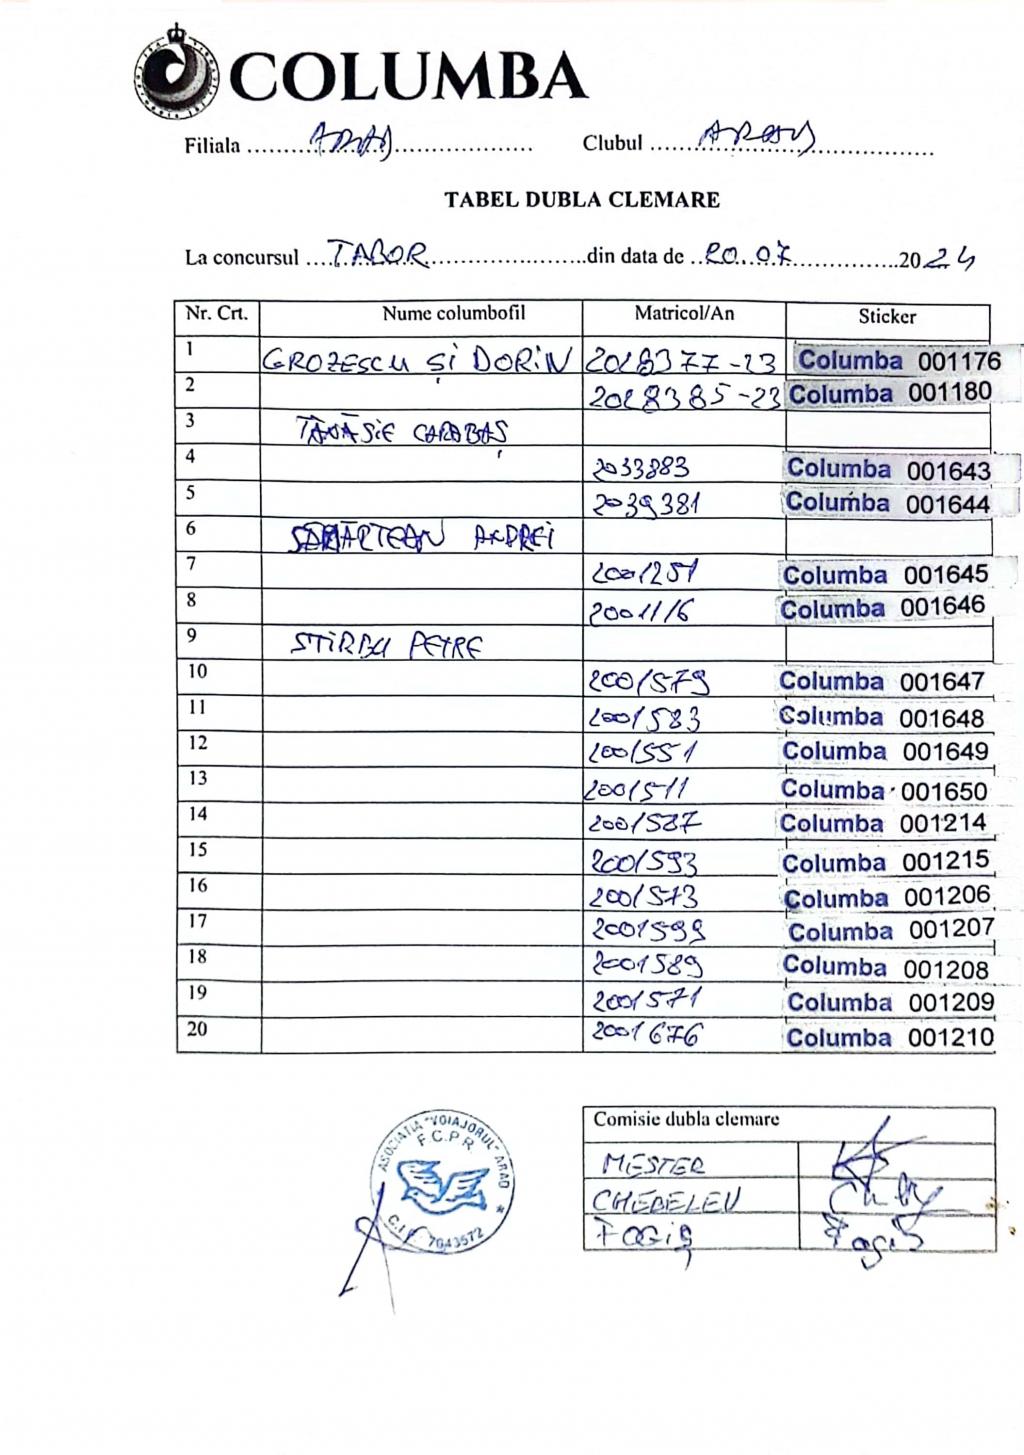 COLUMBA
Filiala ........ARAD........ Clubul ........ARAD........
TABEL DUBLA CLEMARE
La concursul ....TABOR........din data de ..20.07........2024
Nr. Crt. Nume columbofil Matricol/An Sticker
1 GROZESCU ȘI DORIN 2018377-23 Columba 001176
2 2018385-23 Columba 001180
3 TĂNĂSIE CARABAȘ
4 2033883 Columba 001643
5 2039381 Columba 001644
6 SĂMĂRTEAN ANDREI
7 2001251 Columba 001645
8 2001116 Columba 001646
9 STIRBU PETRE
10 2001579 Columba 001647
11 2001583 Columba 001648
12 2001551 Columba 001649
13 2001511 Columba 001650
14 2001587 Columba 001214
15 2001593 Columba 001215
16 2001573 Columba 001206
17 2001599 Columba 001207
18 2001589 Columba 001208
19 2001571 Columba 001209
20 2001676 Columba 001210
ASOCIATIA "VOIAJORUL" ARAD
F.C.P.R.
C.I.F. 7043572
Comisie dubla clemare
MESTER
CHEBELEU
FOGIȘ